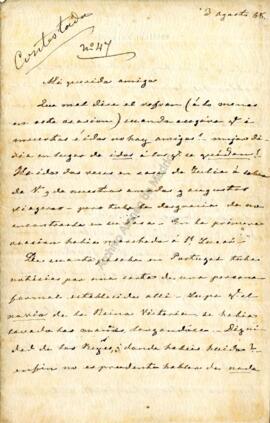 2 agosto 68.
Contestada
nº 47
Mi querida amiga
Que mal dice el refran (á lo menos
en esta ocasion) cuando asegura qe á
muertos é idos no hay amigos! mejor di-
ria en lugar de idos á los qe se quedan!
He ido dos veces en casa de Julia á saber
de V. y de nuestros amados y augustos
viageros - pero tuve la desgracia de no
encontrarla en su casa. En la primera
ocasion habia marchado á Sn Lucar.
De cuanto pasaba en Portugal tuve
noticias por una carta de una persona
formal establecida alli. Supe qe el
navio de la Reina Victoria se habia
lavado las manos
dad de los Reyes, ¿donde habeis huido?
en fin no es prudente hablar de nada